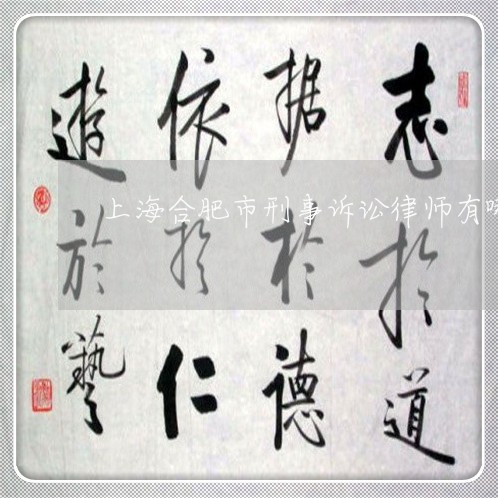 志於道
据於德
依於仁
遊於藝
上海合肥市刑事诉讼律师有